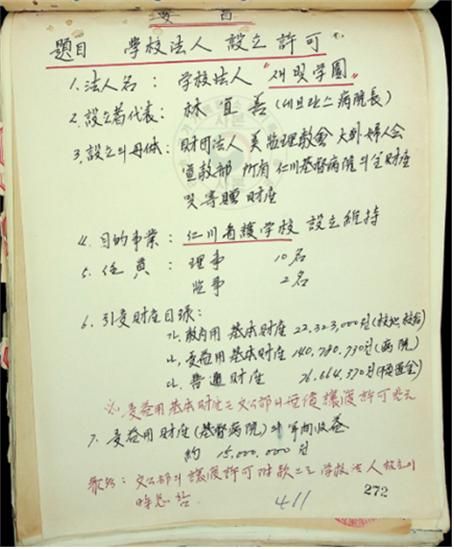 題目 學校法人 設立許可
1. 法人名 : 学校法人 "새빛学園"
2. 設立者代表 : 林宜善 (세브란스病院長)
3. 設立의母体 : 財団法人 美監理教會 大韓婦人会
宣教部 所有 仁川基督病院의全財産
寄贈財産
4. 目的事業 : 仁川看護学校 設立維持
5. 任員 : 理事 10名
監事 2名
6. 引受財産目録 :
가. 敎育用 基本財産 22,323,000원(校地,校舍)
나. 受益用基本財産 140,780,730원(病院)
다. 普通財産 26,664,370원
※ 受益用基本財産는 文公部의 讓渡許可
7. 受益用財産(基督病院)의 年间收益
約 15,000,000원
文公部의 讓渡許可 学校法人
411
272